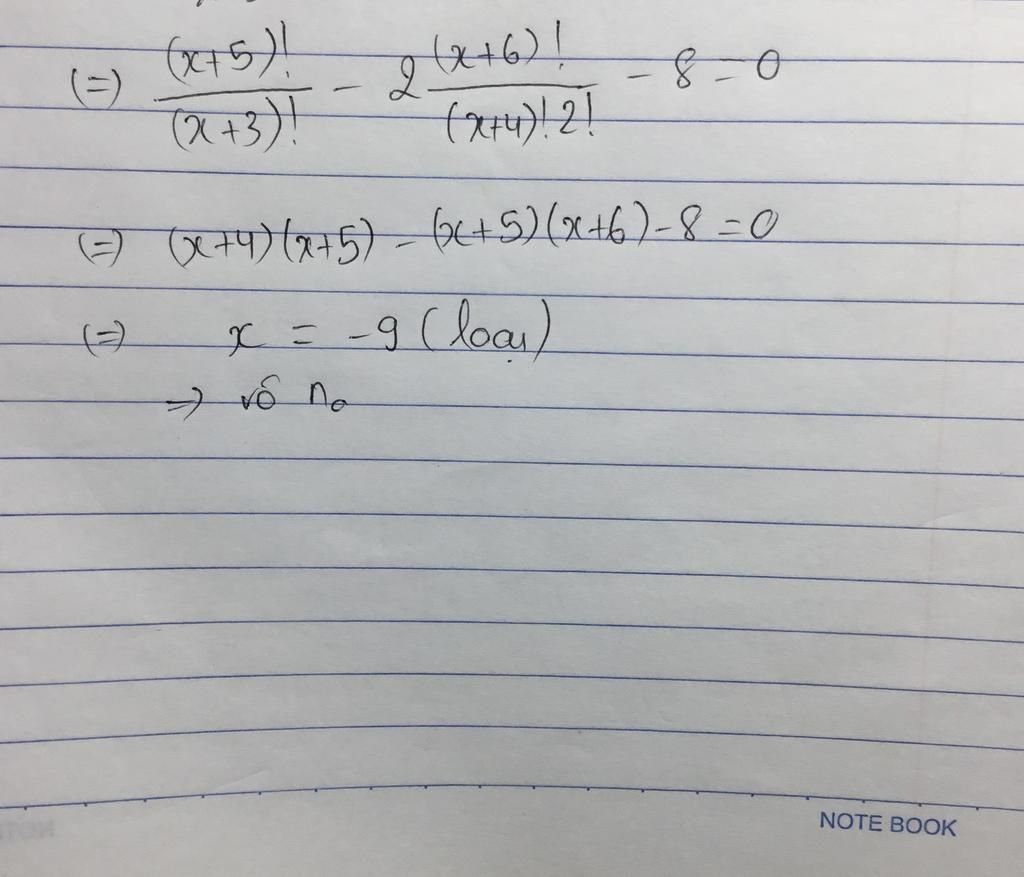 (=) (x+5)!/(x+3)! - 2 (x+6)!/(x+4)!2! - 8 = 0
(=) (x+4)(x+5) - (x+5)(x+6) - 8 = 0
(=) x = -9 (loại)
=> vô no
NOTE BOOK